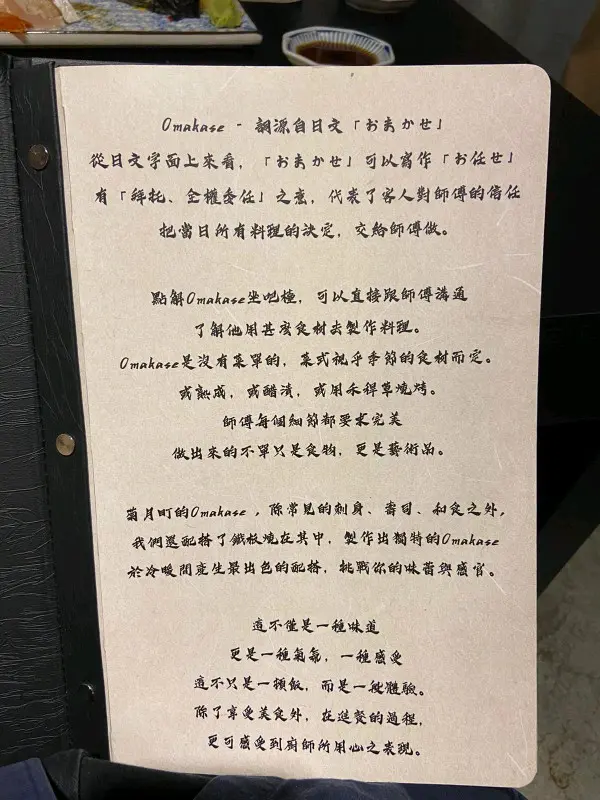 Omakase - 詞源自日文「おまかせ」
從日文字面上來看，「おまかせ」可以寫作「お任せ」
有「拜托、全權委任」之意，代表了客人對師傅的信任
把當日所有料理的決定，交給師傅做。
點解Omakase坐吧檯，可以直接跟師傅溝通
了解他用甚麼食材去製作料理。
Omakase是沒有菜單的，菜式視乎季節的食材而定。
或熟成，或醋漬，或用禾稈草燒烤。
師傅每個細節都要求完美
做出來的不單只是食物，更是藝術品。
菊月町的Omakase，除常見的刺身、壽司、和食之外，
我們還配搭了鐵板燒在其中，製作出獨特的Omakase
於冷暖間產生最出色的配搭，挑戰你的味蕾與感官。
這不僅是一種味道
更是一種氣氛，一種感受
這不只是一頓飯，而是一種體驗。
除了享受美食外，在進餐的過程，
更可感受到廚師所用心之表現。